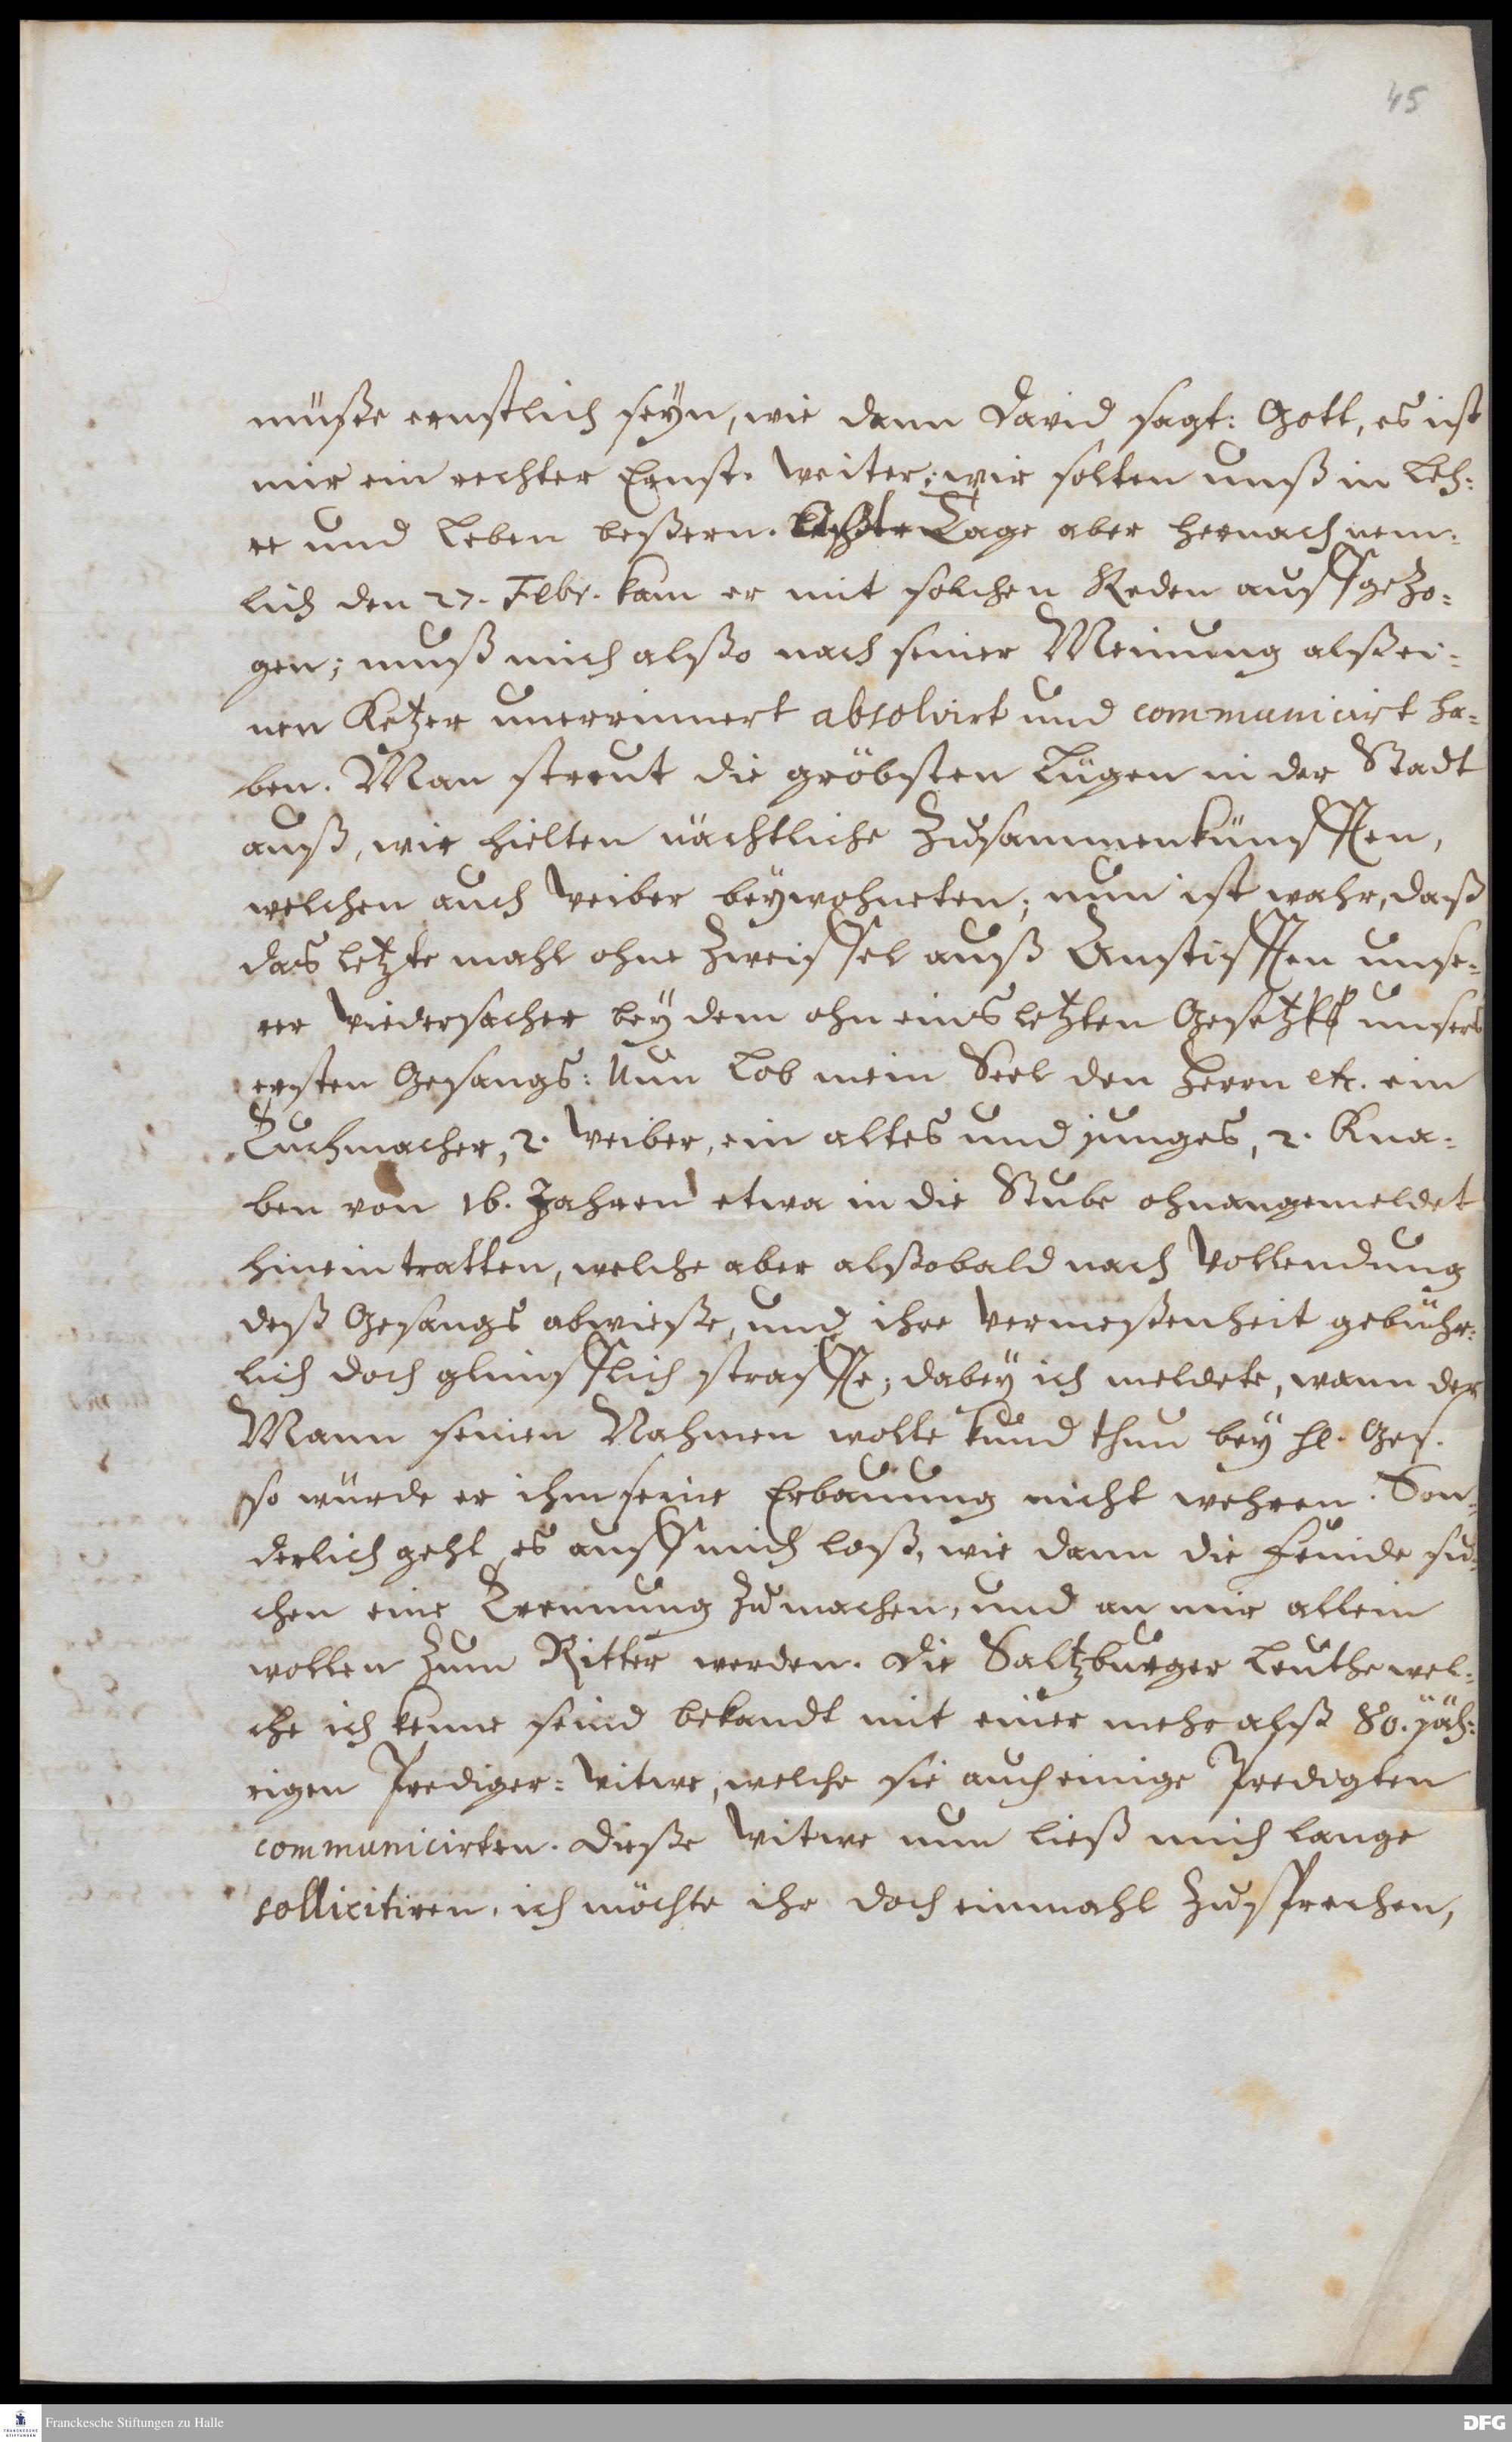 45
müße ernstlich seyn, wie dann David sagt: Gott, es ist
mir ein rechter Ernst. Weiter; wir solten unß in Leh-
re und Leben beßern. Tage aber hernach nem-
lich den 27. Febr. kam er mit solchen Reden auffgezo-
gen; muß mich alßo nach seiner Meinung alß ei-
nen Ketzer unerinnert absolvirt und communicirt ha-
ben. Man streut die gröbsten Lügen in der Stadt
auß, wir hielten nächtliche Zusammenkünfften,
welchen auch Weiber beywohneten; nun ist wahr, daß
das letzte mahl ohne Zweiffel auß Anstifften unse-
rer Wiedersacher bey dem ohn eins letzten Gesetz unsers
ersten Gesangs: Nun Lob mein Seel den Herrn etc. ein
Tuchmacher, 2. Weiber, ein altes und junges, 2. Kna-
ben von 16. Jahren etwa in die Stube ohnangemeldet
hineintratten, welche aber alßobald nach Vollendung
deß Gesangs abwieße, und ihre Vermeßenheit gebühr-
lich doch glimpfflich straffte; dabey ich meldete, wann der
Mann seinen Nahmen wolte kund thun bey H. Ges.
so würde er ihm seine Erbauung nicht wehren. Son-
derlich geht es auff mich loß, wie dann die Feinde su-
chen eine Trennung zu machen, und an mir allein
wollen zum Ritter werden. Die Saltzburger Leuthe wel-
che ich kenne seind bekandt mit einer mehr alß 80. jäh-
rigen Prediger-Witwe, welche sie auch einige Predigten
communicirten. Dieße Witwe nun ließ mich lange
sollicitiren, ich möchte ihr doch einmahl zusprechen,
Franckesche Stiftungen zu Halle
DFG